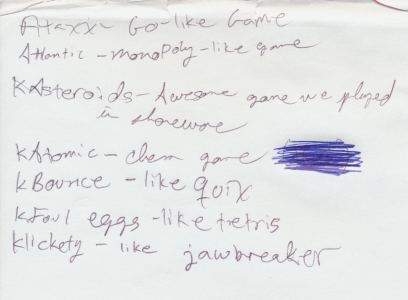 Ataxx - Go-like Game
Atlantic - monopoly - like game
KAsteroids - Awesome game we played
in shareware
kAtomic - chem game
kBounce - like quix
kFoul eggs - like tetris
klickety - like jawbreaker